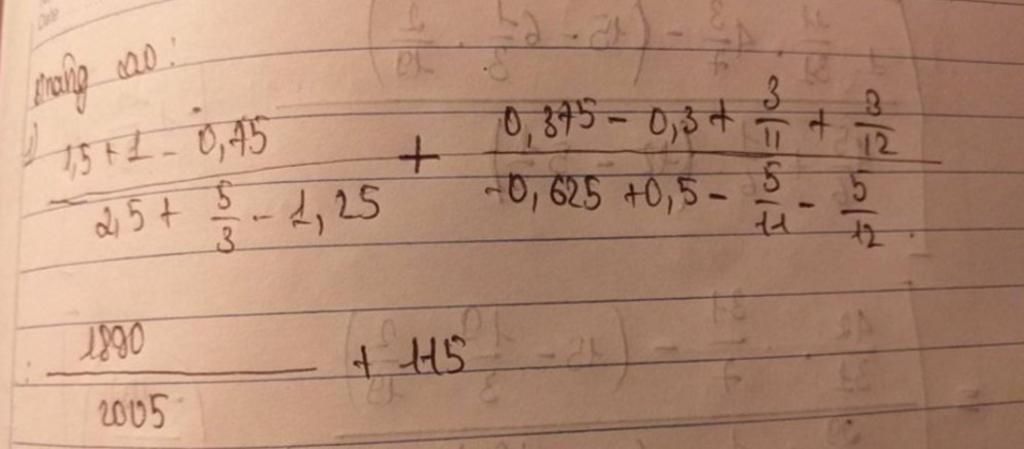 Date
nâng cao:
1,5 + 1 - 0,75 / 2,5 + 5/3 - 1,25 + 0,375 - 0,3 + 3/11 + 3/12 / -0,625 + 0,5 - 5/11 - 5/12
1890 / 2005 + 115